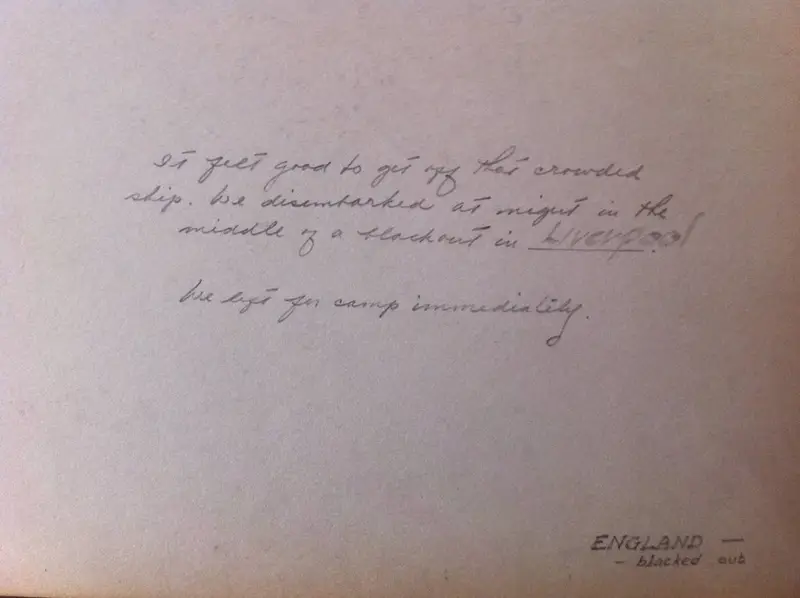 It felt good to get off that crowded
ship. We disembarked at night in the
middle of a blackout in Liverpool
We left for camp immediately.
ENGLAND —
- blacked out